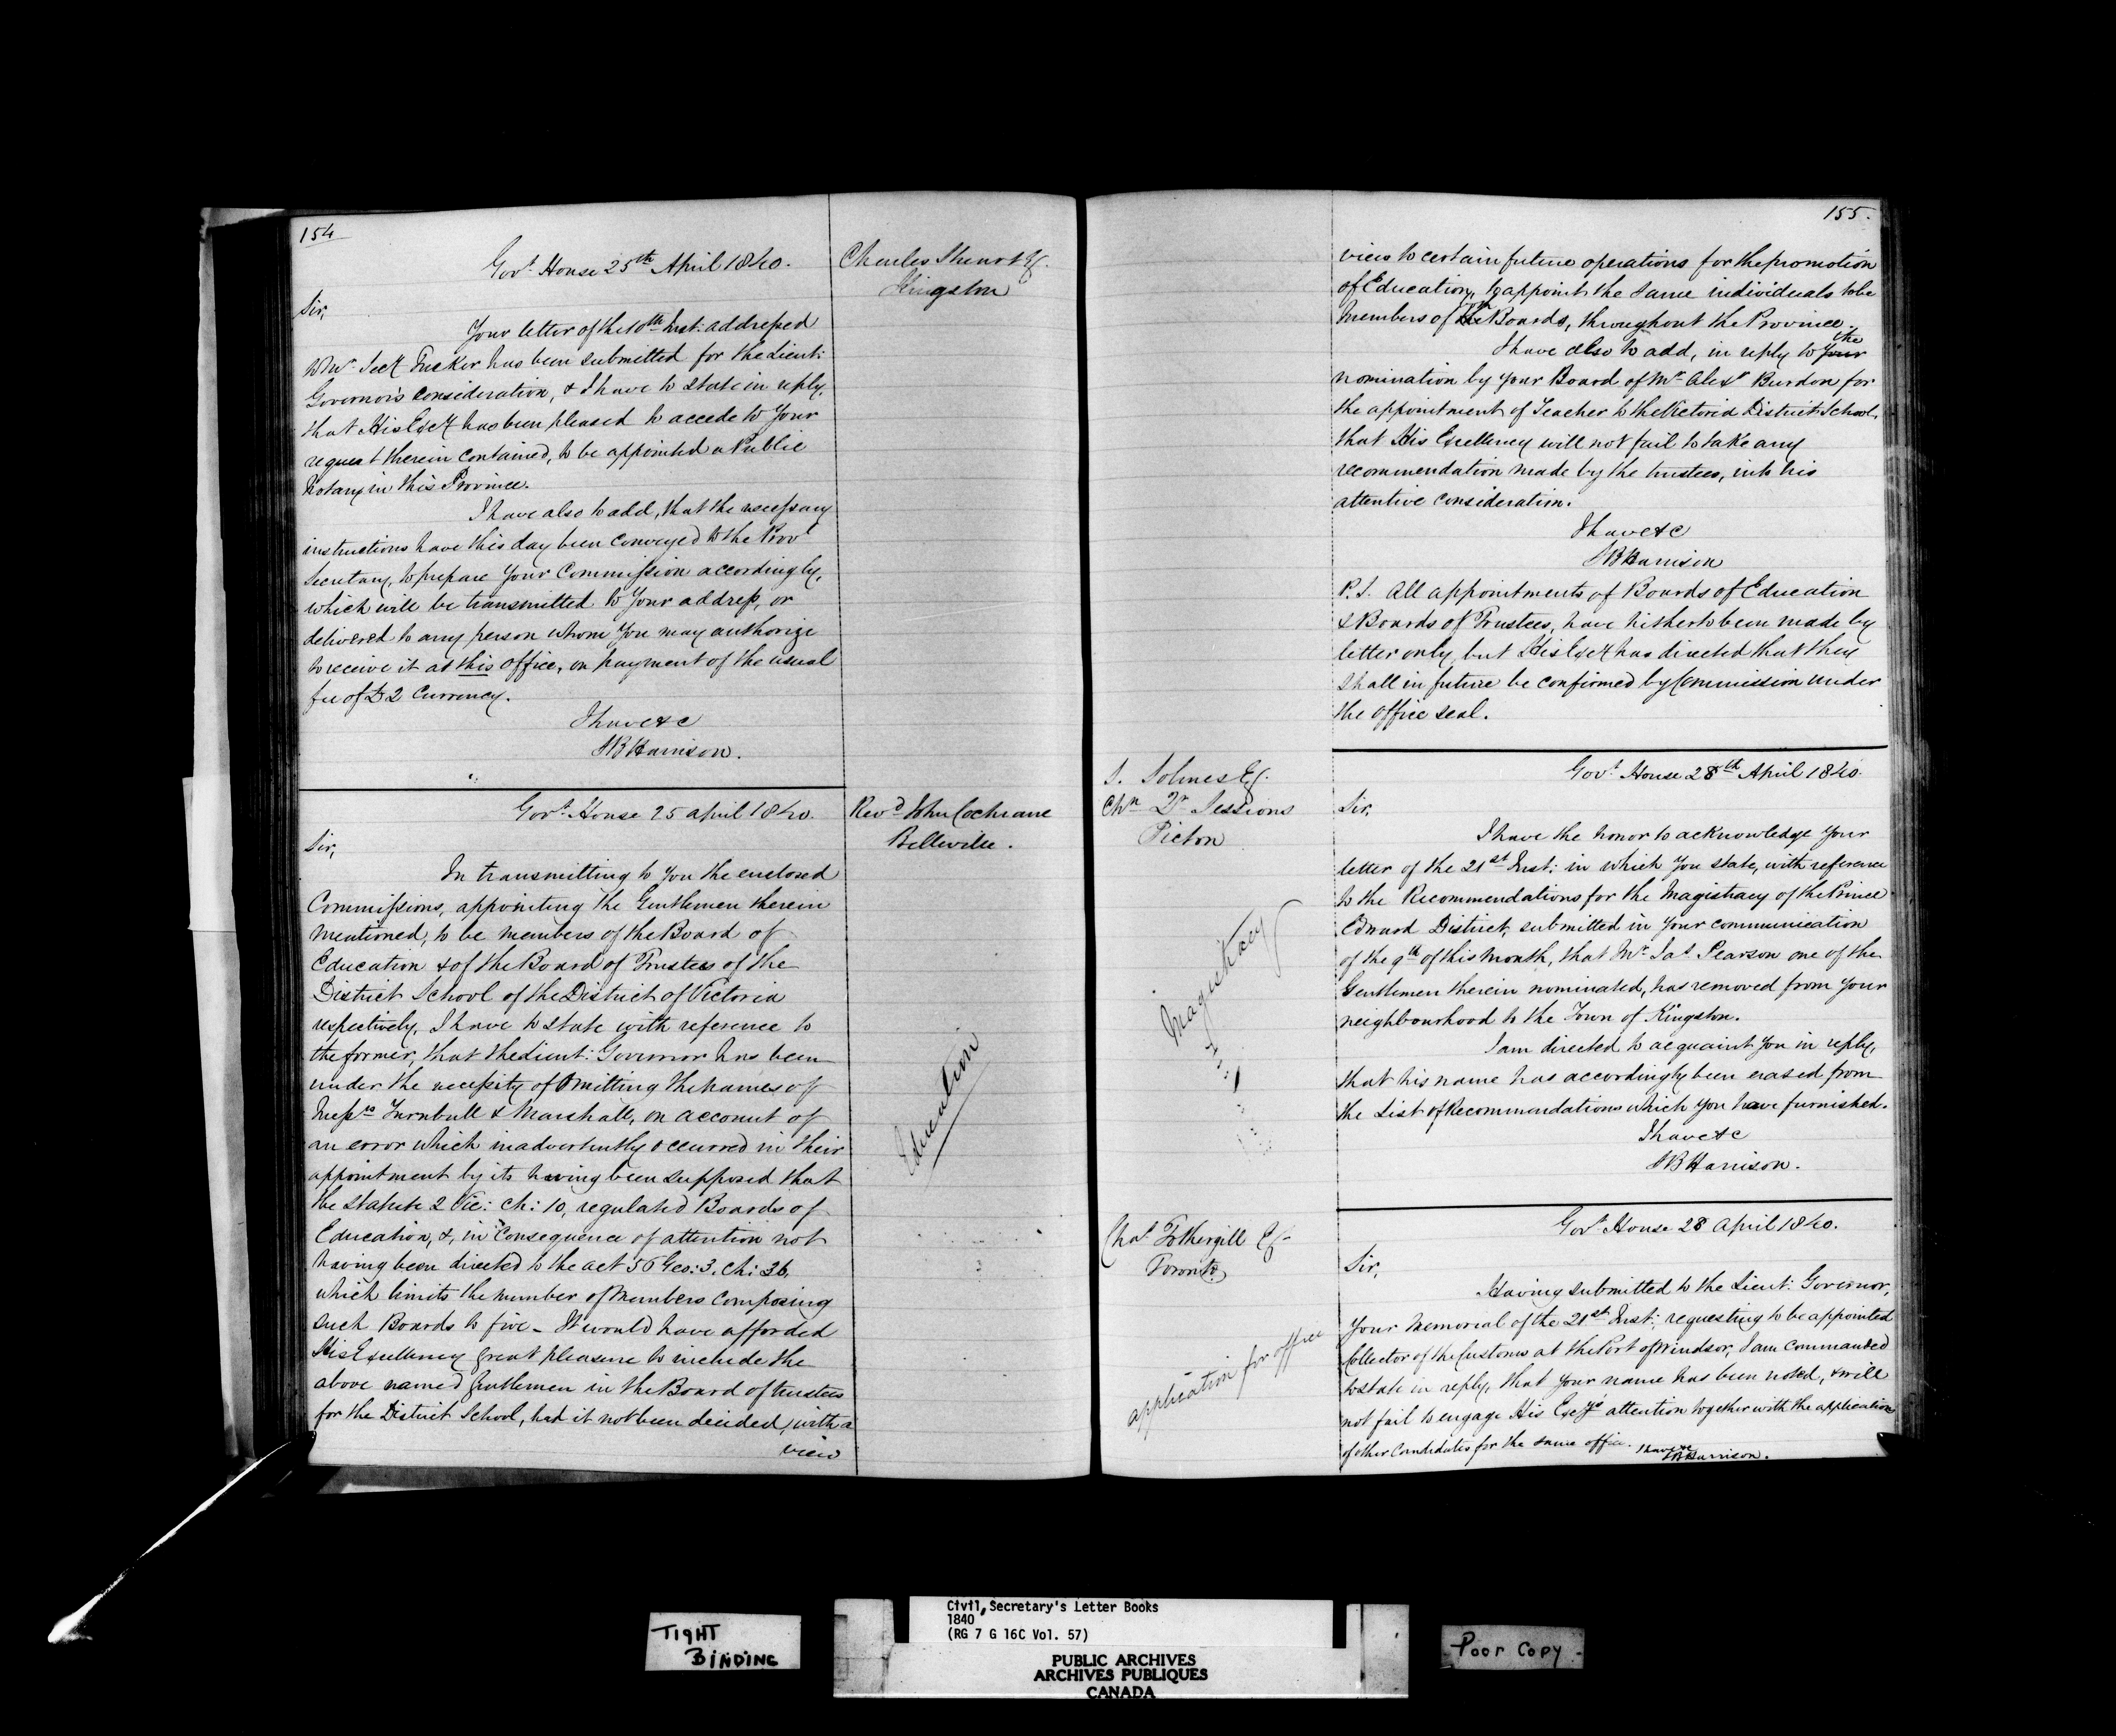 154
Govt. House 25th April 1840.
Charles Stuart Esq.
Kingston
Sir,
Your letter of the 10th Inst: addressed
to Mr. Secy Tucker has been submitted for the Lieut:
Governor's consideration, & I have to state in reply,
that His Excy has been pleased to accede to Your
request therein contained, to be appointed a Public
Notary in this Province.
I have also to add, that the necessary
instructions have this day been conveyed to the Provl
Secretary, to prepare Your Commission accordingly,
which will be transmitted to Your address, or
delivered to any person whom You may authorize
to receive it at this office, on payment of the usual
fee of £2 Currency.
I have &c
SB Harrison.
Govt. House 25 April 1840.
Revd John Cochrane
Belleville.
Sir,
In transmitting to You the enclosed
Commissions, appointing the Gentlemen therein
mentioned, to be members of the Board of
Education & of the Board of Trustees of the
District School of the District of Victoria
respectively, I have to state with reference to
the former, that the Lieut: Governor has been
under the necessity of Omitting the names of
Messrs Turnbull & Marshall, on account of
an error which inadvertently occurred in their
appointment by its having been supposed that
the statute 2 Vic: Ch: 10, regulated Boards of
Education, &, in consequence of attention not
having been directed to the act 56 Geo: 3. Ch: 36,
which limits the number of members composing
such Boards to five - It would have afforded
His Excellency great pleasure to include the
above named gentlemen in the Board of trustees
for the District School, had it not been decided, with a
view
Education
155.
view to certain future operations for the promotion
of Education, to appoint the same individuals to be
Members of both the Boards, throughout the Province.
I have also to add, in reply to Your the
nomination by Your Board of Mr Alexr Burdon for
the appointment of Teacher to the Victoria District School,
that His Excellency will not fail to take any
recommendation made by the trustees, into his
attentive consideration.
I have &c
SB Harrison
P.S. All appointments of Boards of Education
& Boards of Trustees, have hitherto been made by
letter only, but His Excy has directed that they
shall in future be confirmed by Commission under
the office seal.
S. Solmes Esq.
Chn Qr Sessions
Picton
Govt. House 28th April 1840.
Sir,
I have the honor to acknowledge Your
letter of the 21st Inst: in which You state, with reference
to the Recommendations for the Magistracy of the Prince
Edward District, submitted in Your communication
of the 9th of this month, that Mr Jas Pearson one of the
Gentlemen therein nominated, has removed from Your
neighbourhood to the Town of Kingston.
I am directed to acquaint You in reply,
that his name has accordingly been erased from
the List of Recommendations which You have furnished.
I have &c
SB Harrison.
Magistracy
Chas Fothergill Esq
Toronto
Govt. House 28 April 1840.
Sir,
Having submitted to the Lieut: Governor,
Your Memorial of the 21st Inst: requesting to be appointed
Collector of the Customs at the Port of Windsor, I am commanded
to state in reply, that Your name has been noted, & will
not fail to engage His Excy's attention together with the applications
of other Candidates for the same office. I have &c
SB Harrison.
application for office
TIGHT
BINDING
Civil Secretary's Letter Books
1840
(RG 7 G 16C Vol. 57)
PUBLIC ARCHIVES
ARCHIVES PUBLIQUES
CANADA
Poor Copy